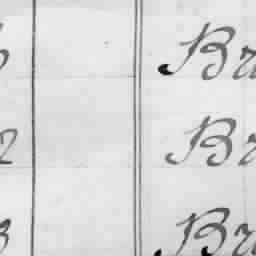 Br
2 Br
3 Br